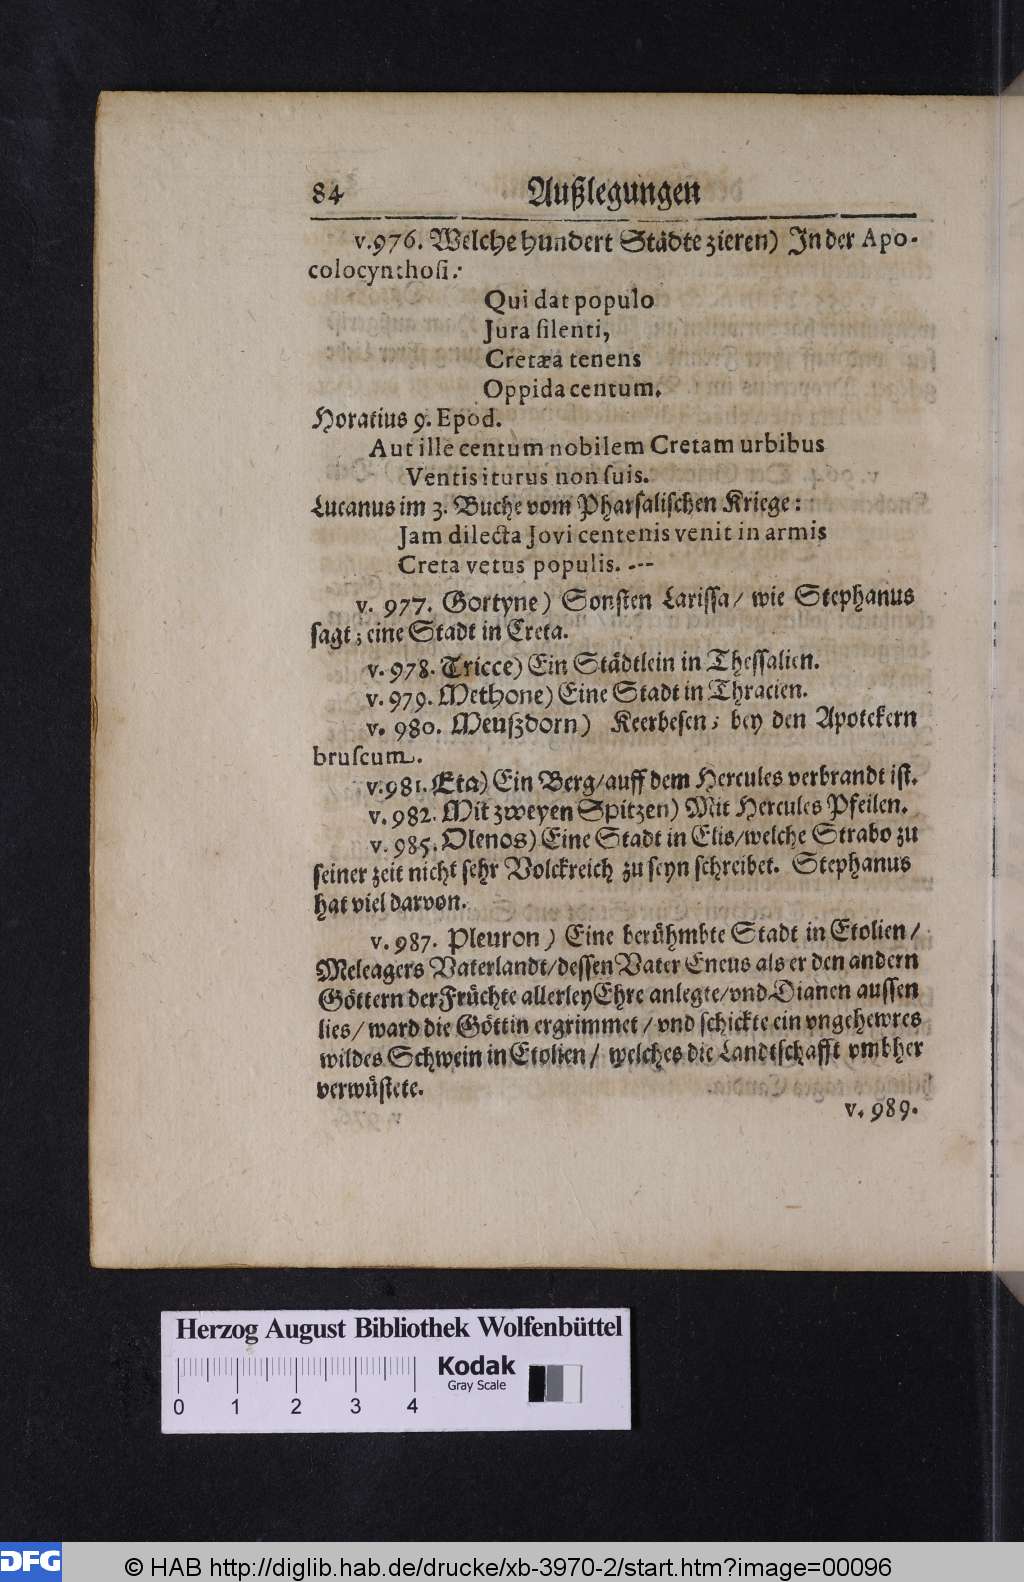 84 Außlegungen
v.976. Welche hundert Städte zieren) In der Apo-
colocynthosi:
Qui dat populo
Jura silenti,
Cretæa tenens
Oppida centum.
Horatius 9. Epod.
Aut ille centum nobilem Cretam urbibus
Ventis iturus non suis.
Lucanus im 3. Buche vom Pharsalischen Kriege:
Jam dilecta Jovi centenis venit in armis
Creta vetus populis. ---
v. 977. Gortyne) Sonsten Larissa/ wie Stephanus
sagt; eine Stadt in Creta.
v. 978. Tricce) Ein Städtlein in Thessalien.
v. 979. Methone) Eine Stadt in Thracien.
v. 980. Meußdorn) Keerbesen; bey den Apotekern
bruscum.
v.981. Eta) Ein Berg/auff dem Hercules verbrandt ist.
v. 982. Mit zweyen Spitzen) Mit Hercules Pfeilen.
v. 985. Olenos) Eine Stadt in Elis/welche Strabo zu
seiner zeit nicht sehr Volckreich zu seyn schreibet. Stephanus
hat viel darvon.
v. 987. Pleuron) Eine berühmbte Stadt in Etolien/
Meleagers Vaterlandt/dessen Vater Eneus als er den andern
Göttern der Früchte allerley Ehre anlegte/vnd Dianen aussen
lies/ ward die Göttin ergrimmet/ vnd schickte ein vngehewres
wildes Schwein in Etolien/ welches die Landtschafft vmbher
verwüstete.
v. 989.
Herzog August Bibliothek Wolfenbüttel
Kodak
Gray Scale
0 1 2 3 4
DFG © HAB http://diglib.hab.de/drucke/xb-3970-2/start.htm?image=00096